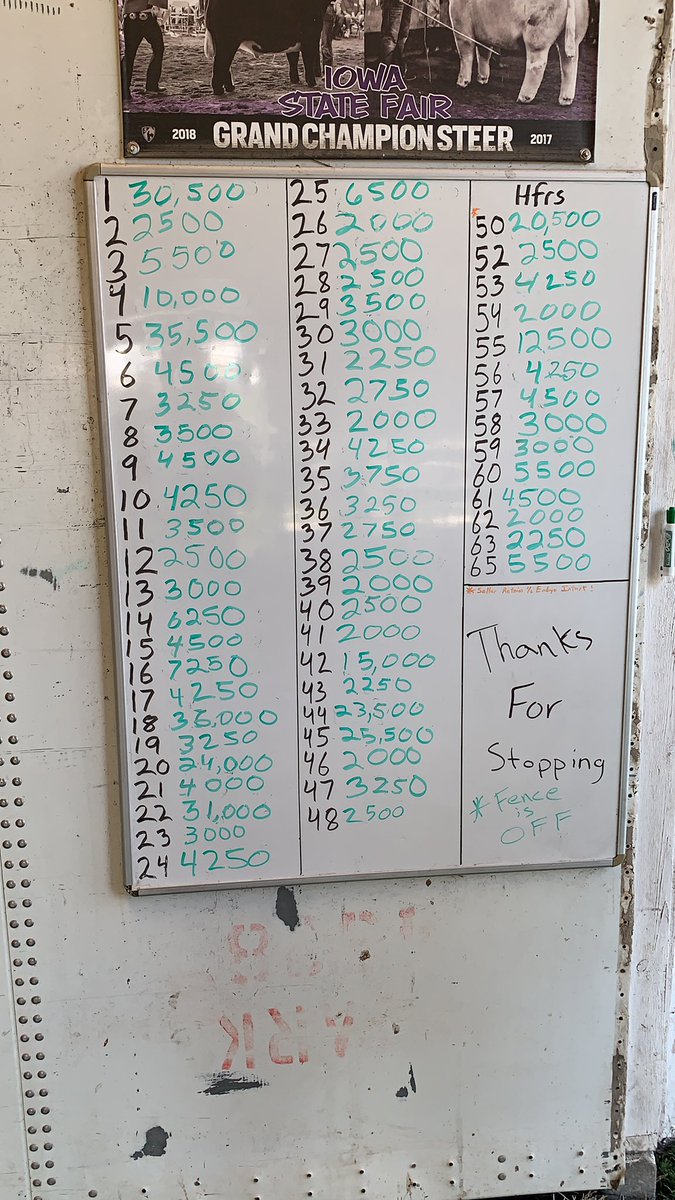 IOWA
STATE FAIR
2018 GRAND CHAMPION STEER 2017
1 30,500
2 2500
3 5500
4 10,000
5 35,500
6 4500
7 3250
8 3500
9 4500
10 4250
11 3500
12 2500
13 3000
14 6250
15 4500
16 7250
17 4250
18 36,000
19 3250
20 24,000
21 4000
22 31,000
23 3000
24 4250
25 6500
26 2000
27 2500
28 2500
29 3500
30 3000
31 2250
32 2750
33 2000
34 4250
35 3750
36 3250
37 2750
38 2500
39 2000
40 2500
41 2000
42 15,000
43 2250
44 23,500
45 25,500
46 2000
47 3250
48 2500
Hfrs
*50 20,500
52 2500
53 4250
54 2000
55 12500
56 4250
57 4500
58 3000
59 3000
60 5500
61 4500
62 2000
63 2250
65 5500
* Seller Retains ½ Embryo
Thanks
For
Stopping
* Fence
is
OFF